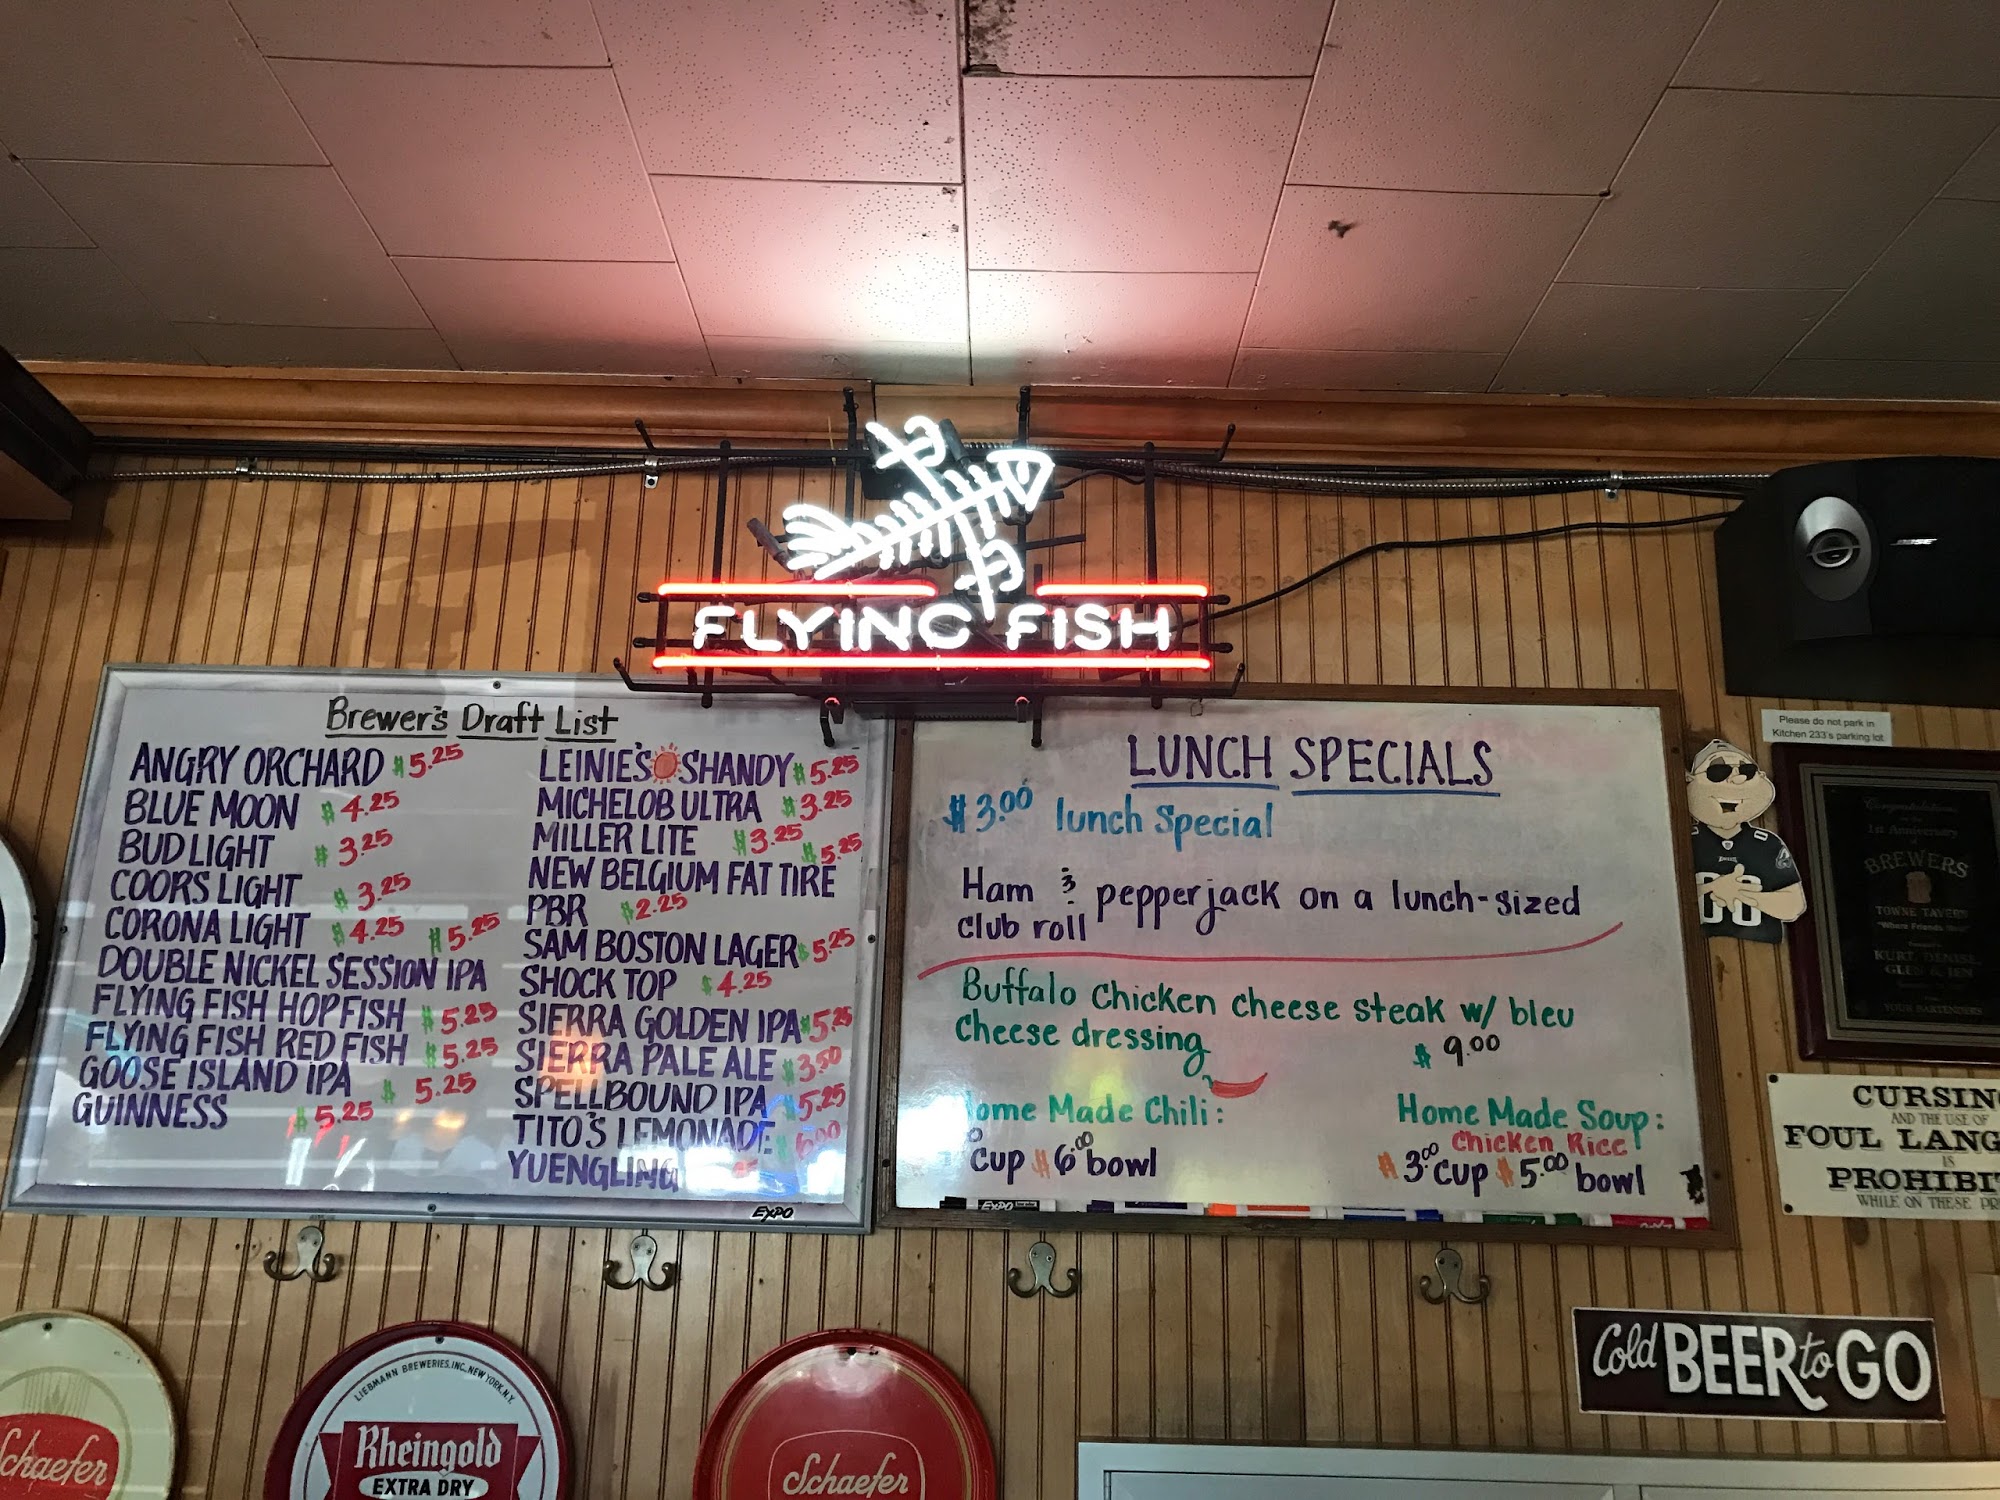 FLYING FISH
Brewer's Draft List
ANGRY ORCHARD $5.25
BLUE MOON $4.25
BUD LIGHT $3.25
COORS LIGHT $3.25
CORONA LIGHT $4.25
DOUBLE NICKEL SESSION IPA $5.25
FLYING FISH HOPFISH $5.25
FLYING FISH RED FISH $5.25
GOOSE ISLAND IPA $5.25
GUINNESS $5.25
LEINIE'S SHANDY $5.25
MICHELOB ULTRA $3.25
MILLER LITE $3.25
NEW BELGIUM FAT TIRE $5.25
PBR $2.25
SAM BOSTON LAGER $5.25
SHOCK TOP $4.25
SIERRA GOLDEN IPA $5.25
SIERRA PALE ALE $3.50
SPELLBOUND IPA $5.25
TITO'S LEMONADE $6.00
YUENGLING
EXPO
LUNCH SPECIALS
$3.00 lunch special
Ham & pepperjack on a lunch-sized
club roll
Buffalo chicken cheese steak w/ bleu
cheese dressing
$9.00
ome Made Chili:
cup $6.00 bowl
Home Made Soup:
Chicken Rice
$3.00 cup $5.00 bowl
EXPO
BOSE
Please do not park in
Kitchen 233's parking lot
Congratulations
1st Anniversary
BREWERS
TOWNE TAVERN
"Where Friends Meet"
KURT, DENISE,
GLEN & JEN
YOUR BARTENDERS
CURSIN
AND THE USE OF
FOUL LANG
IS
PROHIBIT
WHILE ON THESE PR
Cold BEER to GO
Schaefer
LIEBMANN BREWERIES, INC., NEW YORK, N.Y.
Rheingold
EXTRA DRY
Schaefer